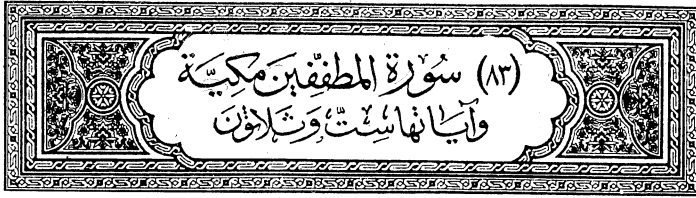 (٨٣) سُورَة المطفّفين مَكيّة
وَآيَاتهَا سِتّ وَثَلاثونَ